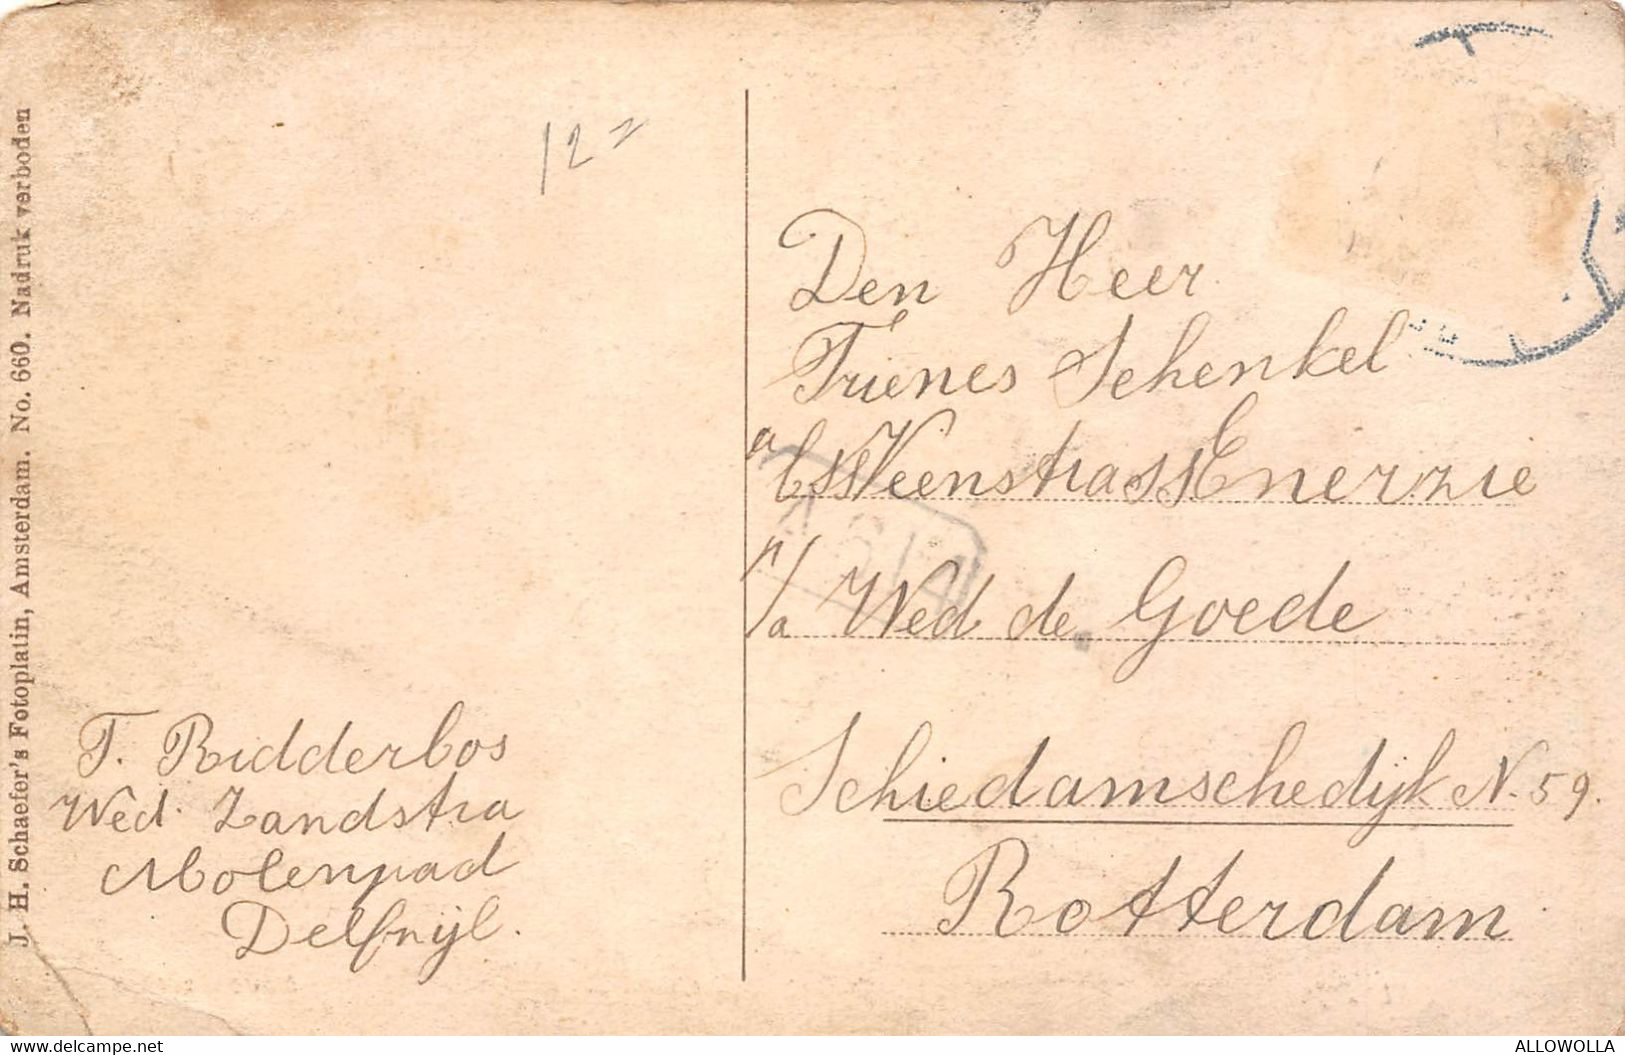 J. H. Schaefer's Fotoplatin, Amsterdam. No. 660. Nadruk verboden
122
Den Heer
Trienes Schenkel
a/b SS Veenstra SS Enerzie
p/a Wed de Goede
Schiedamschedijk N. 59.
Rotterdam
T. Ridderbos
Wed. Zandstra
Molenpad
Delfzijl.
delcampe.net
ALLOWOLLA